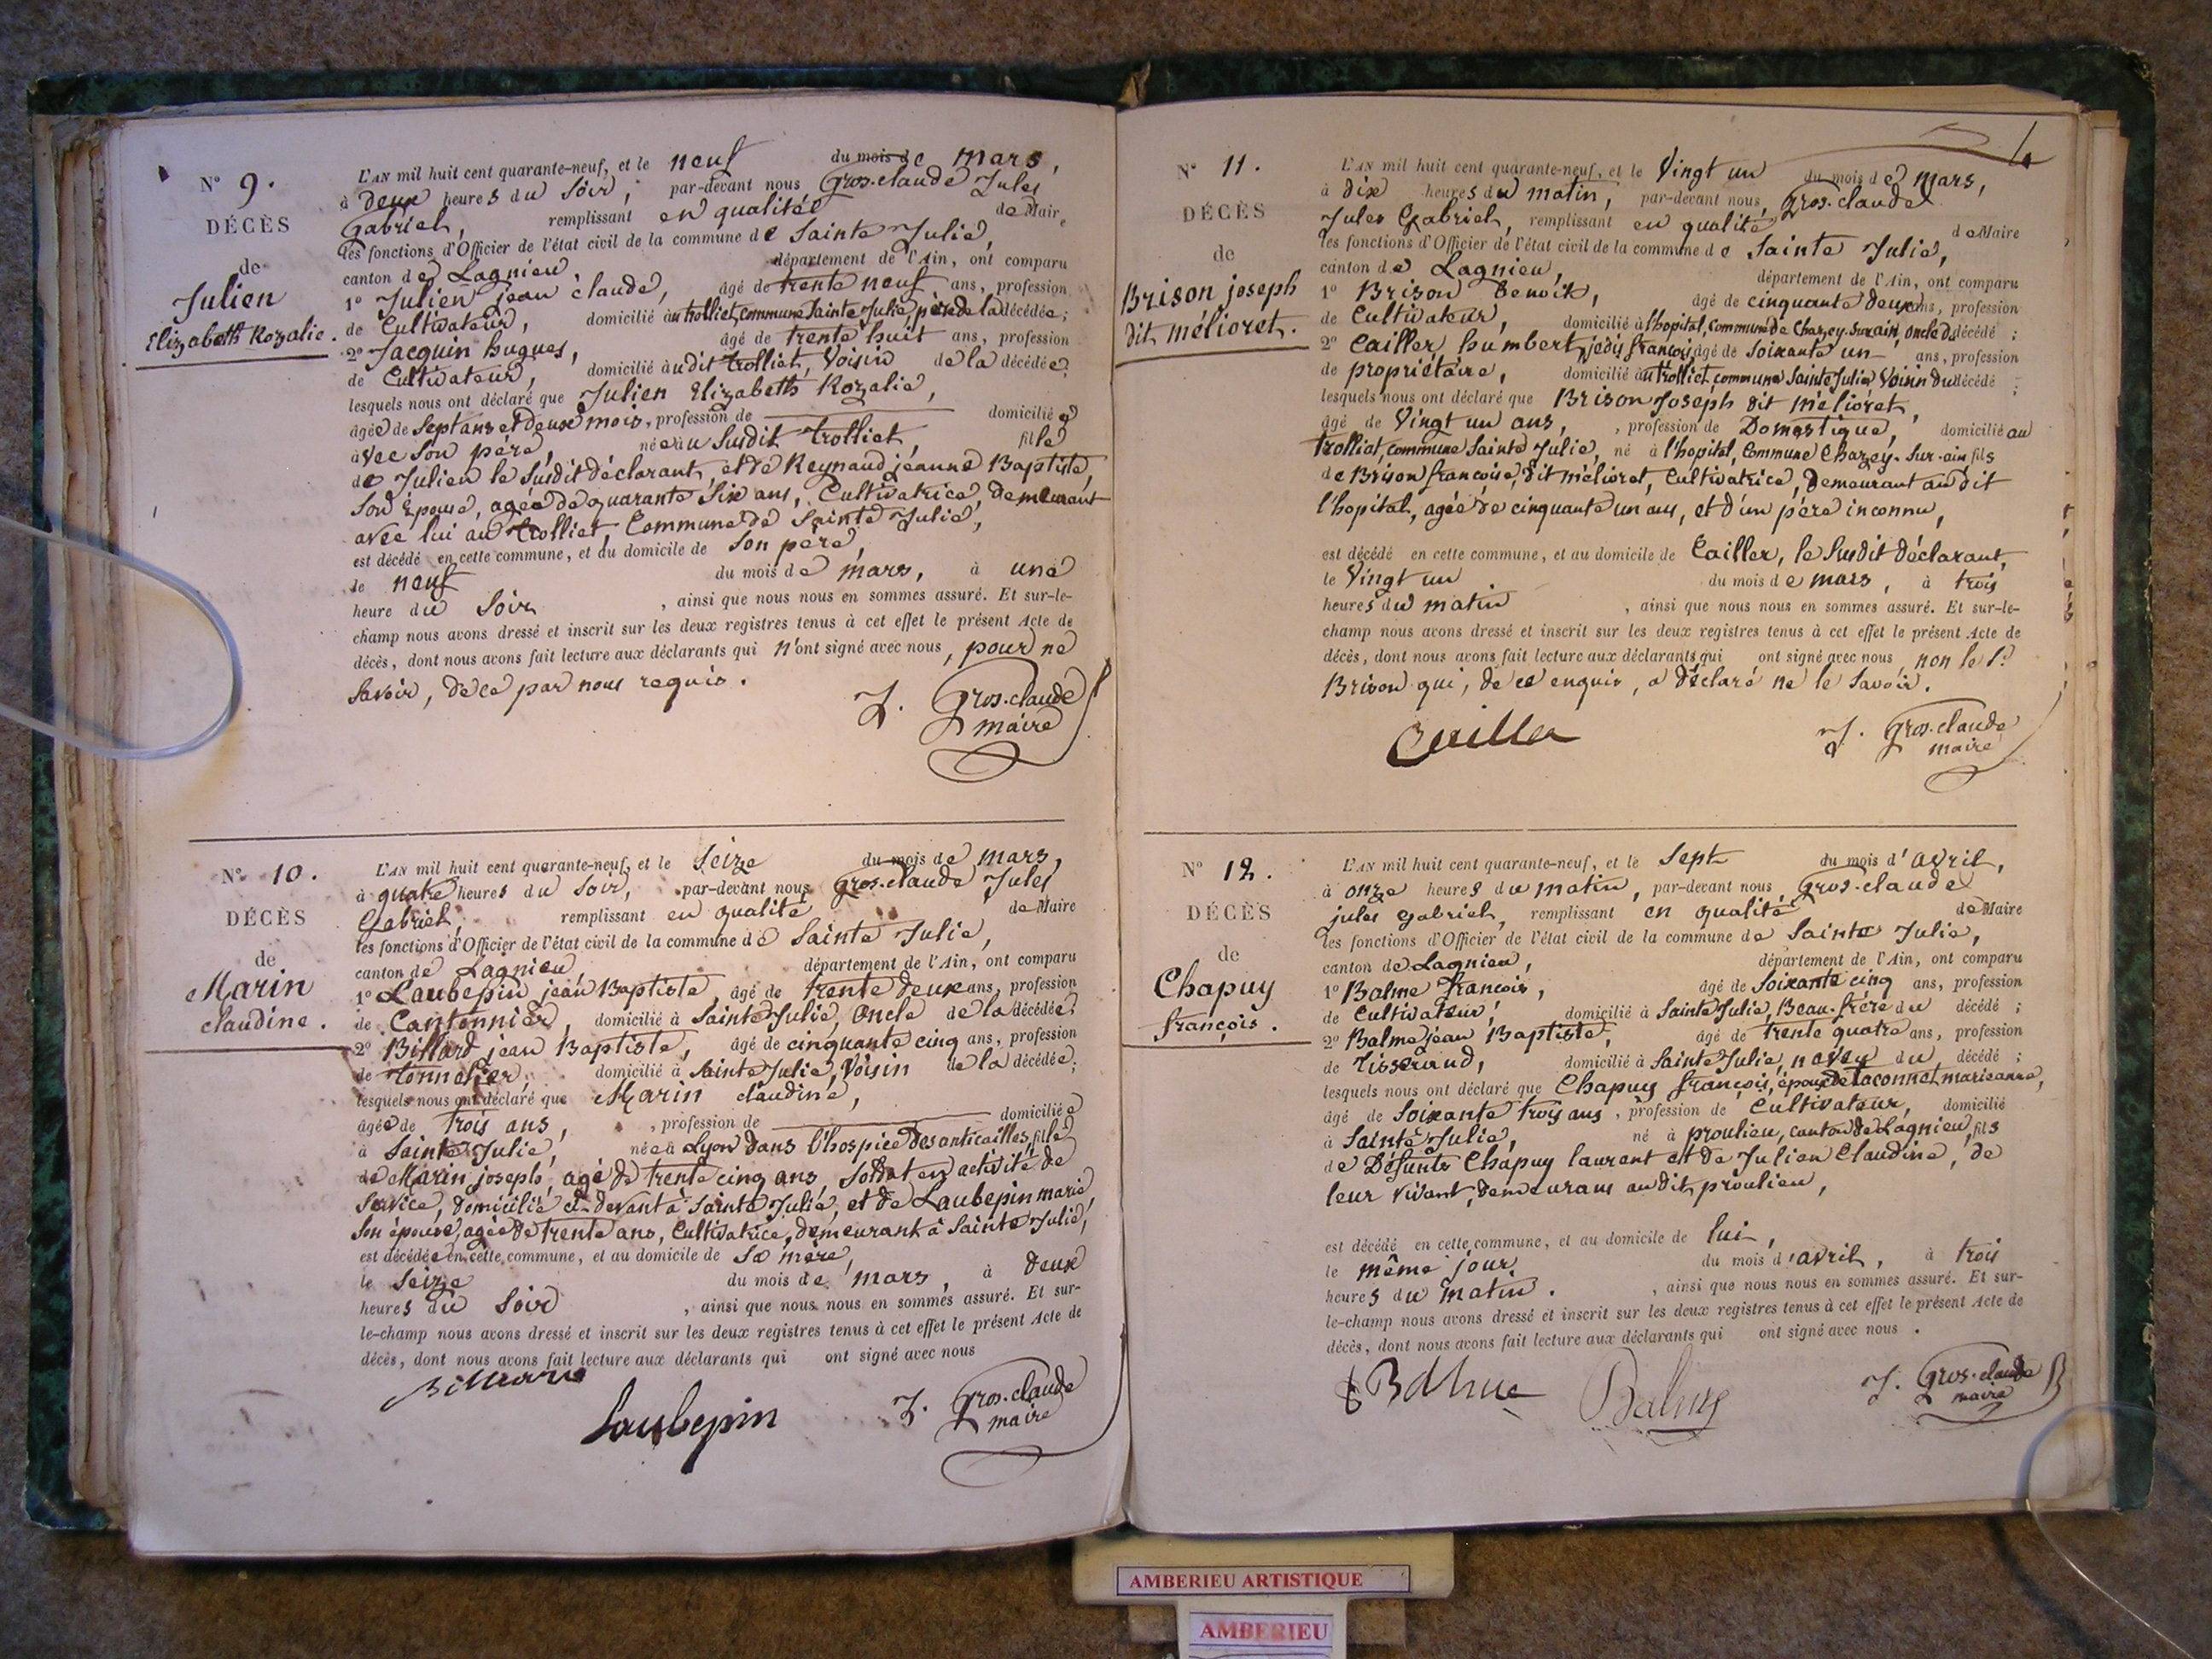 N° 9.
DÉCÈS
de
Julien
Elizabeth Rozalie.
L'AN mil huit cent quarante-neuf, et le neuf du mois de mars,
à deux heures du soir, par-devant nous Gros-claude Jules
Gabriel, remplissant en qualité de Maire
les fonctions d'Officier de l'état civil de la commune de Sainte Julie,
canton de Lagnieu, département de l'Ain, ont comparu
1° Julien jean claude, âgé de trente neuf ans, profession
de Cultivateur, domicilié au trolliet, commune Sainte Julie, père de la décédée;
2° Jacquin hugues, âgé de trente huit ans, profession
de Cultivateur, domicilié audit trolliet, Voisin de la décédée;
lesquels nous ont déclaré que Julien Elizabeth Rozalie,
âgée de Sept ans et deux mois, profession de domiciliée
avec son père, née au susdit trolliet, fille
de Julien le susdit déclarant, et de Reynaud jéanne Baptiste,
son Epouse, agée de quarante six ans, Cultivatrice, demeurant
avec lui au trolliet, Commune de Sainte Julie,
est décédé en cette commune, et au domicile de son père,
le neuf du mois de mars, à une
heure du soir, ainsi que nous nous en sommes assuré. Et sur-le-
champ nous avons dressé et inscrit sur les deux registres tenus à cet effet le présent Acte de
décès, dont nous avons fait lecture aux déclarants qui n'ont signé avec nous, pour ne
savoir, de ce par nous requis.
J. Gros-claude
maire
N° 10.
DÉCÈS
de
Marin
claudine.
L'AN mil huit cent quarante-neuf, et le seize du mois de mars,
à quatre heures du soir, par-devant nous Gros-claude Jules
Gabriel, remplissant en qualité de Maire
les fonctions d'Officier de l'état civil de la commune de Sainte Julie,
canton de Lagnieu, département de l'Ain, ont comparu
1° Laubepin jean Baptiste, âgé de trente deux ans, profession
de Cantonnier, domicilié à Sainte Julie, Oncle de la décédée;
2° Billard jean Baptiste, âgé de cinquante cinq ans, profession
de tonnelier, domicilié à Sainte Julie, Voisin de la décédée;
lesquels nous ont déclaré que Marin claudine,
âgée de trois ans, profession de domiciliée
à Sainte Julie, née à Lyon dans l'hospice des anticailles, fille
de Marin joseph, agé de trente cinq ans, soldat en activité de
service, domicilié ci-devant à Sainte Julie, et de Laubepin marie,
son épouse, agée de trente ans, Cultivatrice, demeurant à Sainte Julie,
est décédée en cette commune, et au domicile de sa mère,
le seize du mois de mars, à deux
heures du soir, ainsi que nous nous en sommes assuré. Et sur-
le-champ nous avons dressé et inscrit sur les deux registres tenus à cet effet le présent Acte de
décès, dont nous avons fait lecture aux déclarants qui ont signé avec nous
Billard
Laubepin
J. Gros-claude
maire
N° 11.
DÉCÈS
de
Brison joseph
dit mélioret.
L'AN mil huit cent quarante-neuf, et le Vingt un du mois de mars,
à dix heures du matin, par-devant nous, Gros-claude
Jules Gabriel, remplissant en qualité de Maire
les fonctions d'Officier de l'état civil de la commune de Sainte Julie,
canton de Lagnieu, département de l'Ain, ont comparu
1° Brison Benoit, âgé de cinquante deux ans, profession
de Cultivateur, domicilié à l'hopital, commune de Chazey-sur-ain, oncle du décédé;
2° Cailler humbert, jedis françois, âgé de soixante un ans, profession
de propriétaire, domicilié au trolliet, commune Sainte Julie, Voisin du décédé;
lesquels nous ont déclaré que Brison Joseph dit mélioret,
âgé de Vingt un ans, profession de Domestique, domicilié au
trolliet, commune Sainte Julie, né à l'hopital, Commune Chazey-sur-ain, fils
de Brison françoise, dit mélioret, Cultivatrice, demeurant au dit
l'hopital, agée de cinquante un ans, et d'un père inconnu,
est décédé en cette commune, et au domicile de Cailler, le susdit déclarant,
le Vingt un du mois de mars, à trois
heures du matin, ainsi que nous nous en sommes assuré. Et sur-le-
champ nous avons dressé et inscrit sur les deux registres tenus à cet effet le présent Acte de
décès, dont nous avons fait lecture aux déclarants qui ont signé avec nous, non le S.r
Brison qui, de ce enquis, a déclaré ne le savoir.
Cailler
J. Gros-claude
maire
N° 12.
DÉCÈS
de
Chapuy
françois.
L'AN mil huit cent quarante-neuf, et le sept du mois d'avril,
à onze heures du matin, par-devant nous, Gros-claude
jules Gabriel, remplissant en qualité de Maire
les fonctions d'Officier de l'état civil de la commune de Sainte Julie,
canton de Lagnieu, département de l'Ain, ont comparu
1° Balme françois, âgé de soixante cinq ans, profession
de Cultivateur, domicilié à Sainte Julie, Beau-frère du décédé;
2° Balme jean Baptiste, âgé de trente quatre ans, profession
de Tisserand, domicilié à Sainte Julie, neveu du décédé;
lesquels nous ont déclaré que Chapuy françois, époux de Jaconnet marieanne,
âgé de soixante trois ans, profession de Cultivateur, domicilié
à Sainte Julie, né à proulieu, canton de Lagnieu, fils
de Défunts Chapuy laurent et de Julien Claudine, de
leur vivant, demeurans audit proulieu,
est décédé en cette commune, et au domicile de lui,
le même jour du mois d'avril, à trois
heures du matin., ainsi que nous nous en sommes assuré. Et sur-
le-champ nous avons dressé et inscrit sur les deux registres tenus à cet effet le présent Acte de
décès, dont nous avons fait lecture aux déclarants qui ont signé avec nous.
Balme
J. Gros-claude
maire
AMBERIEU ARTISTIQUE
AMBERIEU